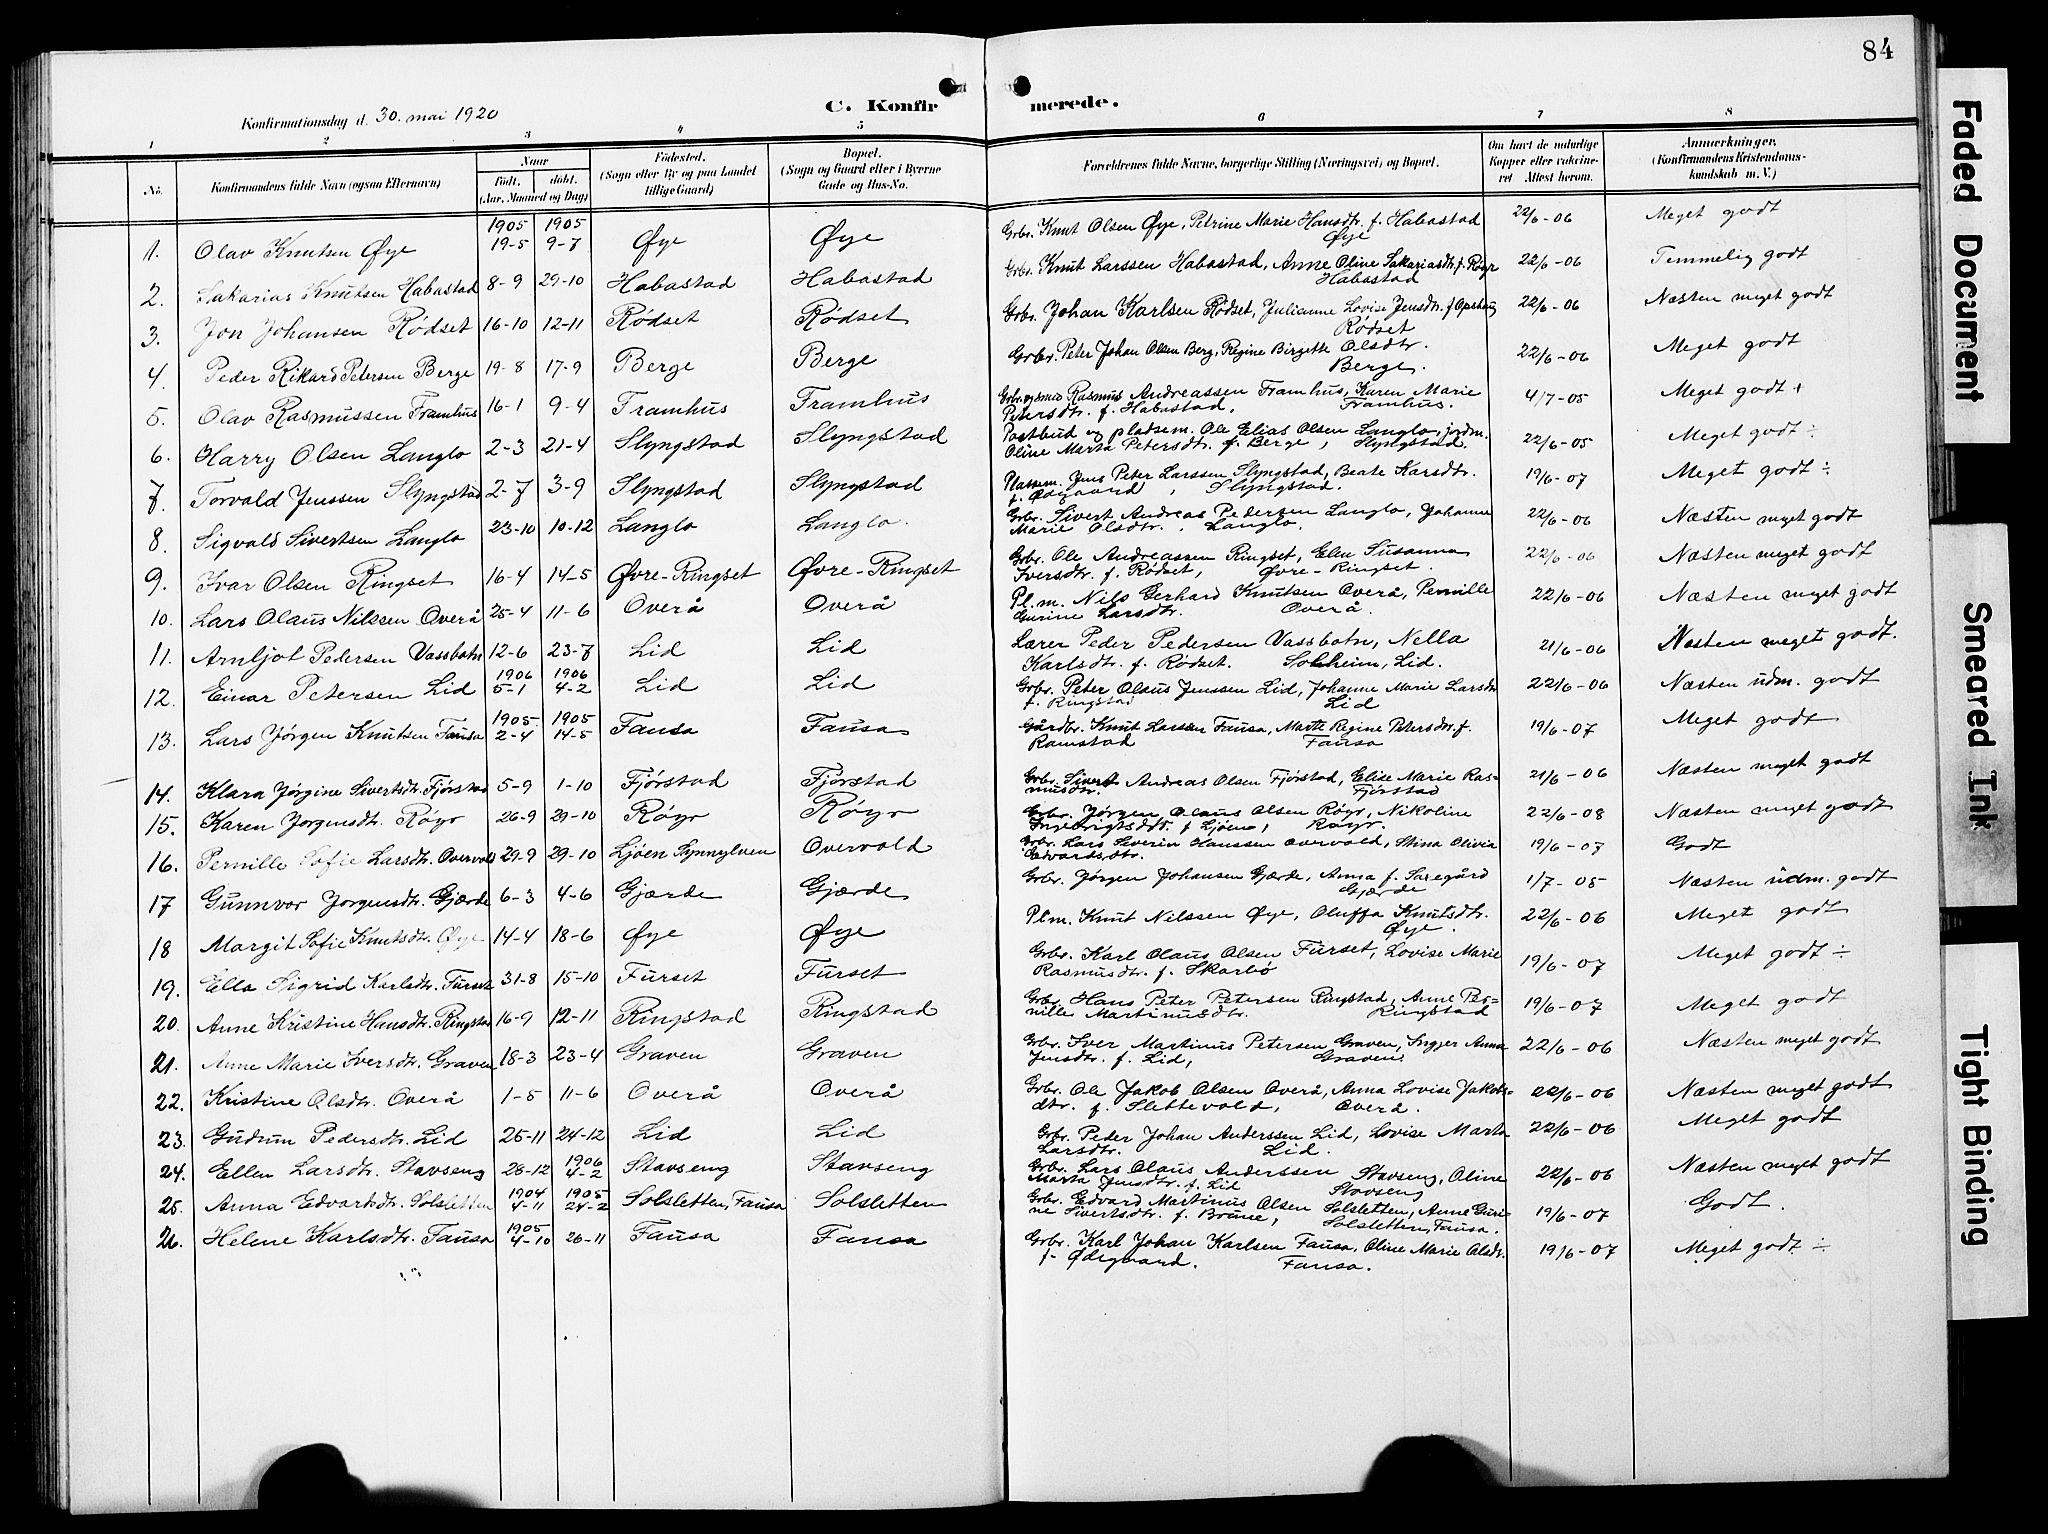 84
C. Konfirmerede.
Konfirmationsdag d. 30. mai 1920
1 2 3 4 5 6 7 8
No. Konfirmandens fulde Navn (ogsaa Efternavn) Naar Født, døbt. (Aar, Maaned og Dag) Fødested. (Sogn eller By og paa Landet tillige Gaard) Bopæl. (Sogn og Gaard eller i Byerne Gade og Hus-No. Forældrenes fulde Navne, borgerlige Stilling (Næringsvei) og Bopæl. Om havt de naturlige Kopper eller vakcineret Attest herom. Anmærkninger, (Konfirmandens Kristendomskundskab m. V.)
1905 1905
1. Olav Knutsen Øye 19-5 9-7 Øye Øye Grbr. Knut Olsen Øye, Petrine Marie Hansdtr. f. Habastad Øye 22/6-06 Meget godt
2. Sakarias Knutsen Habastad 8-9 29-10 Habastad Habastad Grbr. Knut Larssen Habastad, Anne Oline Sakariasdtr. f. Røyr Habastad 22/6-06 Temmelig godt
3. Jon Johansen Rødset 16-10 12-11 Rødset Rødset Grbr. Johan Karlsen Rødset, Julianne Lovise Jensdtr. f. Opshaug Rødset 22/6-06 Næsten meget godt
4. Peder Rikard Petersen Berge 19-8 17-9 Berge Berge Grbr. Peter Johan Olsen Berg, Regine Birgette Olsdtr. Berge. 22/6-06 Meget godt
5. Olav Rasmussen Framhus 16-1 9-4 Framhus Framhus Grbr. og smed Rasmus Andreassen Framhus, Karen Marie Petersdtr. f. Habastad, Framhus. 4/7-05 Meget godt +
6. Harry Olsen Langlo 2-3 21-4 Slyngstad Slyngstad Postbud og pladsem. Ole Elias Olsen Langlo, jordm. Oline Marta Petersdtr. f. Berge, Slyngstad. 22/6-05 Meget godt ÷
7. Torvald Jenssen Slyngstad 2-7 3-9 Slyngstad Slyngstad Plassem. Jens Peter Larssen Slyngstad, Beate Larsdtr. f. Ødegaard, Slyngstad. 19/6-07 Meget godt ÷
8. Sigvald Sivertsen Langlo 23-10 10-12 Langlo Langlo. Grbr. Sivert Andreas Pedersen Langlo, Johanne Marie Olsdtr. Langlo. 22/6-06 Næsten meget godt
9. Ivar Olsen Ringset 16-4 14-5 Øvre-Ringset Øvre-Ringset Grbr. Ole Andreassen Ringset, Elen Susanna Iversdtr. f. Rødset, Øvre-Ringset. 22/6-06 Næsten meget godt
10. Lars Olaus Nilssen Overå 25-4 11-6 Overå Overå Pl.m. Nils Gerhard Knutsen Overå, Pernille Gurine Larsdtr. Overå. 22/6-06 Næsten meget godt
11. Arnljot Pedersen Vassbotn 12-6 23-7 Lid Lid Lærer Peder Pedersen Vassbotn, Nella Karlsdtr. f. Rødset. Solheim, Lid. 21/6-06 Næsten meget godt.
1906 1906
12. Einar Petersen Lid 5-1 4-2 Lid Lid Grbr. Peter Olaus Jenssen Lid, Johanne Marie Larsdtr. f. Ringstad Lid 22/6-06 Næsten udm. godt
1905 1905
13. Lars Jørgen Knutsen Fausa 2-4 14-5 Fausa Fausa Gårdbr. Knut Larssen Fausa, Marte Regine Petersdtr. f. Ramstad Fausa 19/6-07 Meget godt
14. Klara Jørgine Sivertsdtr. Fjørstad 5-9 1-10 Fjørstad Fjørstad Grbr. Sivert Andreas Olsen Fjørstad, Elise Marie Rasmusdtr. Fjørstad 21/6-06 Næsten meget godt
15. Karen Jørgensdtr. Røyr 26-9 29-10 Røyr Røyr Grbr. Jørgen Olaus Olsen Røyr, Nikoline Ingebrigtsdtr. f. Ljøen, Røyr. 22/6-08 Næsten meget godt
16. Pernille Sofie Larsdtr. Overvold 29-9 29-10 Ljøen Synnylven Overvold Grbr. Lars Severin Hanssen Overvold, Stina Olivia Edvardsdtr. 19/6-07 Godt
17 Gunnvor Jørgensdtr. Gjærde 6-3 4-6 Gjærde Gjærde Grbr. Jørgen Johansen Gjærde, Anna f. Saregård Gjærde 1/7-05 Næsten udm. godt
18 Margit Sofie Knutsdtr. Øye 14-4 18-6 Øye Øye Plm. Knut Nilssen Øye, Oluffa Knutsdtr. Øye. 22/6-06 Meget godt
19. Ella Sigrid Karlsdtr. Furset 31-8 15-10 Furset Furset Grbr. Karl Olaus Olsen Furset, Lovise Marie Rasmusdtr. f. Skarbø 19/6-07 Meget godt ÷
20. Anne Kristine Hansdtr. Ringstad 16-9 12-11 Ringstad Ringstad Grbr. Hans Peter Petersen Ringstad, Anne Pernille Martinusdtr. Ringstad 19/6-07 Meget godt
21. Anne Marie Iversdtr. Graven 18-3 23-4 Graven Graven Grbr. Iver Martinus Petersen Graven, Inger Anna Jensdtr. f. Lid, Graven 22/6-06 Næsten meget godt
22. Kristine Olsdtr. Overå 1-5 11-6 Overå Overå Grbr. Ole Jakob Olsen Overå, Anna Lovise Jakobsdtr. f. Slettevold, Overå. 22/6-06 Næsten meget godt
23. Gudrun Pedersdtr. Lid 25-11 24-12 Lid Lid Grbr. Peder Johan Anderssen Lid, Lovise Marta Larsdtr. Lid. 22/6-06 Meget godt
1906
24. Ellen Larsdtr. Stavseng 28-12 4-2 Stavseng Stavseng Grbr. Lars Olaus Anderssen Stavseng, Oline Marta Jensdtr. f. Lid Stavseng 22/6-06 Næsten meget godt
1904 1905
25. Anna Edvardsdtr. Solsletten 4-11 24-2 Solsletten, Fausa Solsletten Grbr. Edvard Martinus Olsen Solsletten, Anne Gurine Sivertsdtr. f. Brune, Solsletten, Fausa. 19/6-07 Godt.
1905
26. Helene Karlsdtr. Fausa 4-10 26-11 Fausa Fausa Grbr. Karl Johan Karlsen Fausa, Oline Marie Olsdtr. f. Ødegaard. Fausa. 19/6-07 Meget godt ÷
Faded Document
Smeared Ink
Tight Binding